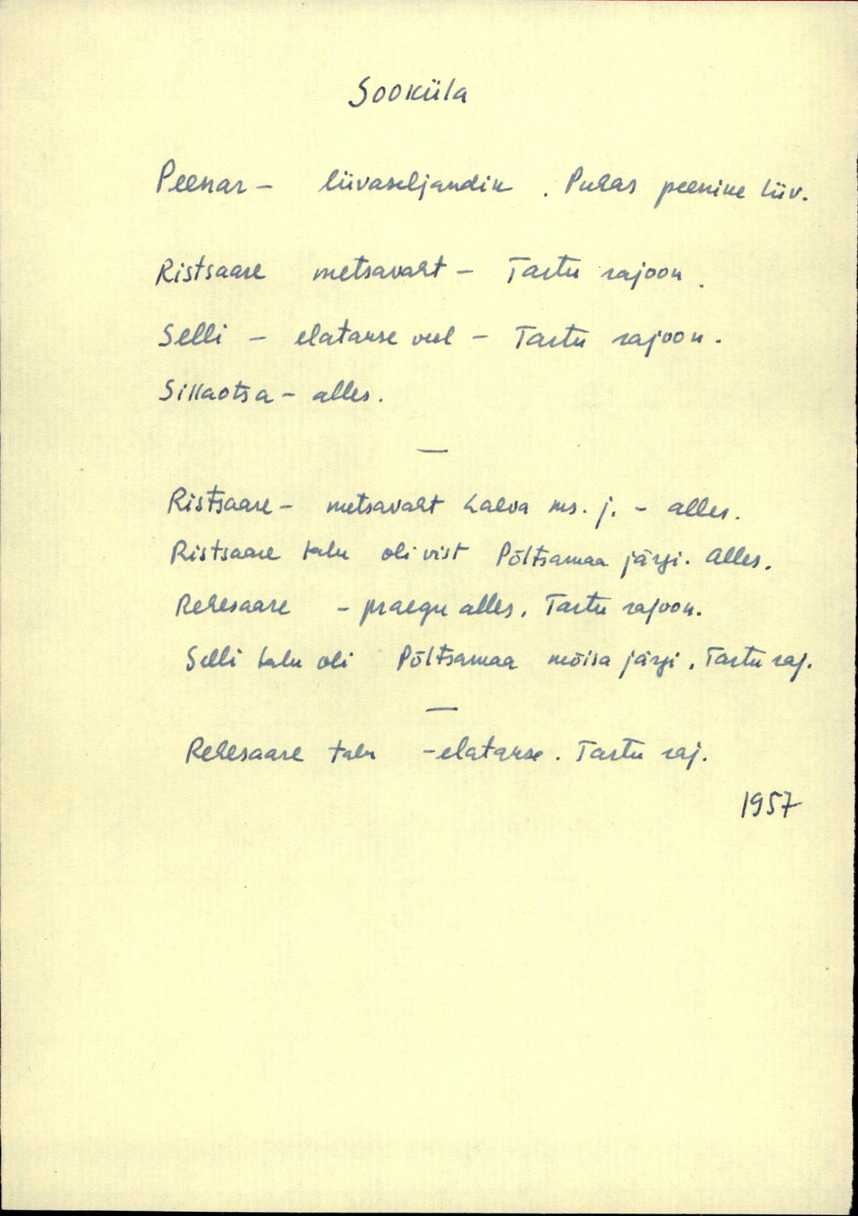 Sooküla
Peenar - liivaseljandik. Puhas peenike liiv.
Ristsaare metsavaht - Tartu rajoon.
Selli - elatakse veel - Tartu rajoon.
Sillaotsa - alles.
—
Ristsaare - metsavaht Laeva ms. j. - alles.
Ristsaare talu oli vist Põltsamaa järgi. Alles.
Rehesaare - praegu alles. Tartu rajoon.
Selli talu oli Põltsamaa mõisa järgi. Tartu raj.
—
Rehesaare talu - elatakse. Tartu raj.
1957